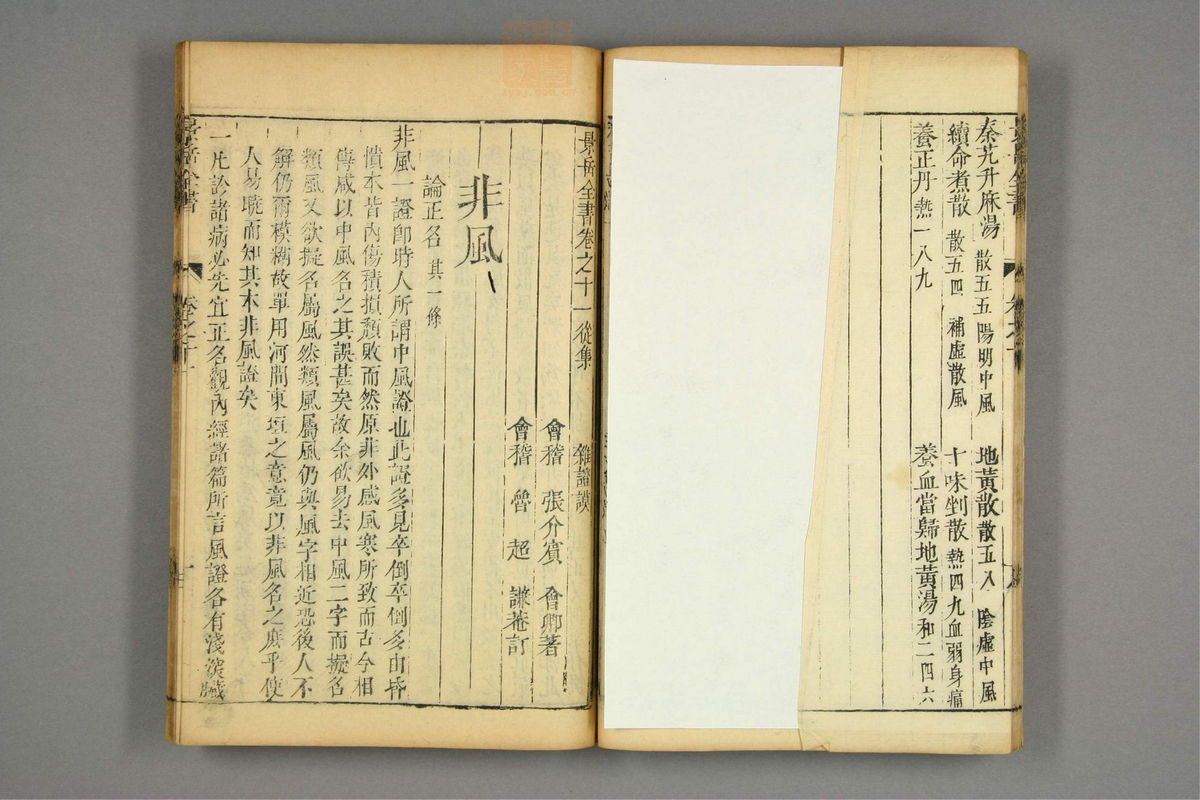 秦艽升麻湯 散五五 陽明中風 地黃散 散五八 陰虛中風
續命煮散 散五四 補虛散風 十味剉散 熱四九 血弱身痛
養正丹 熱一八九 養血當歸地黃湯 和二四六
景岳全書卷之十一 從集 雜證謨
會稽 張介賓 會卿著
會稽 魯超 謙菴訂
非風
論正名 其一條
非風一證卽時人所謂中風證也此證多見卒倒卒倒多由昏
憒本皆內傷積損頹敗而然原非外感風寒所致而古今相
傳咸以中風名之其誤甚矣故余欲易去中風二字而擬名
類風又欲擬名屬風然類風屬風仍與風字相近恐後人不
解仍爾模糊故單用河間東垣之意竟以非風名之庶乎使
人易曉而知其本非風證矣
一凡診諸病必先宜正名觀內經諸篇所言風證各有淺深臟
景岳全書
卷之十一
一